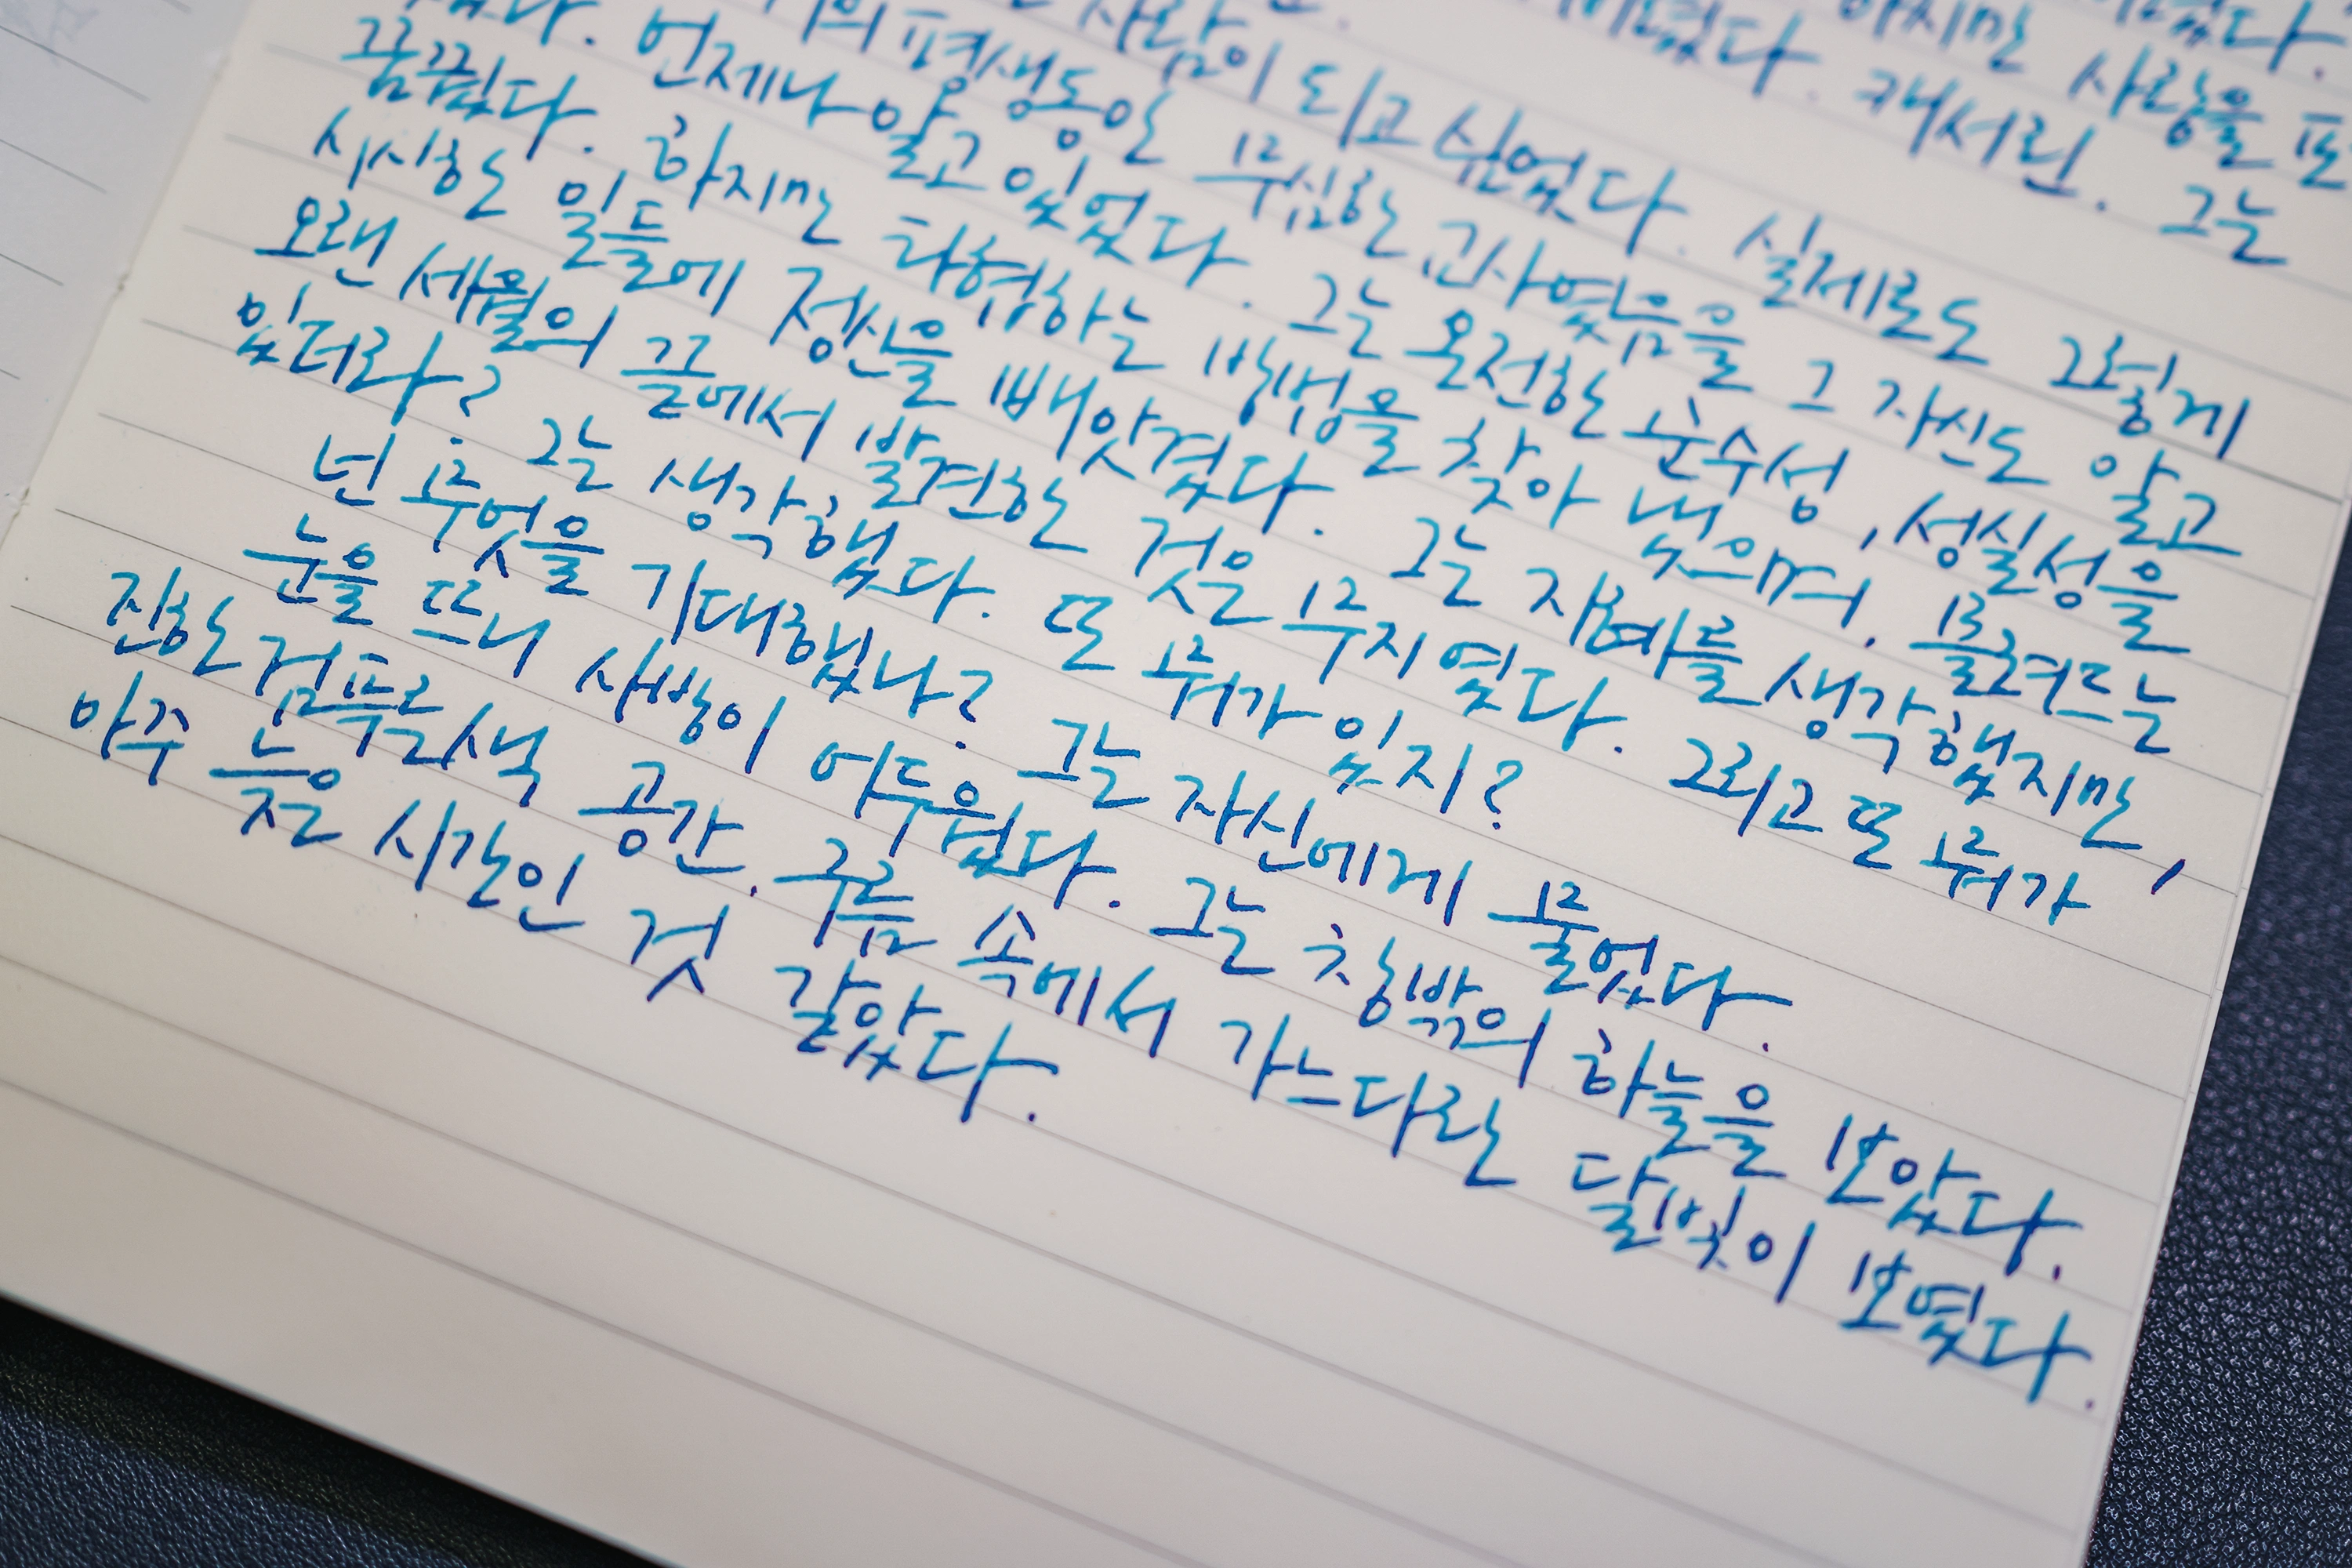 하지만 사랑을 포
캐서린. 그는
사람이 되고 싶었다. 실제로도 그렇게
평생동안 무심한 교사였음을 그 자신도 알고
언제나 알고 있었다. 그는 온전한 순수성, 성실성을
꿈꿨다. 하지만 타협하는 방법을 찾아 냈으며, 몰려드는
시시한 일들에 정신을 빼앗겼다. 그는 지혜를 생각했지만,
오랜 세월의 끝에서 발견한 것은 무지였다. 그리고 또 뭐가
있더라? 그는 생각했다. 또 뭐가 있지?
넌 무엇을 기대했나? 그는 자신에게 물었다.
눈을 뜨니 사방이 어두웠다. 그는 창밖의 하늘을 보았다.
진한 검푸른색 공간. 구름 속에서 가느다란 달빛이 보였다.
아주 늦은 시간인 것 같았다.